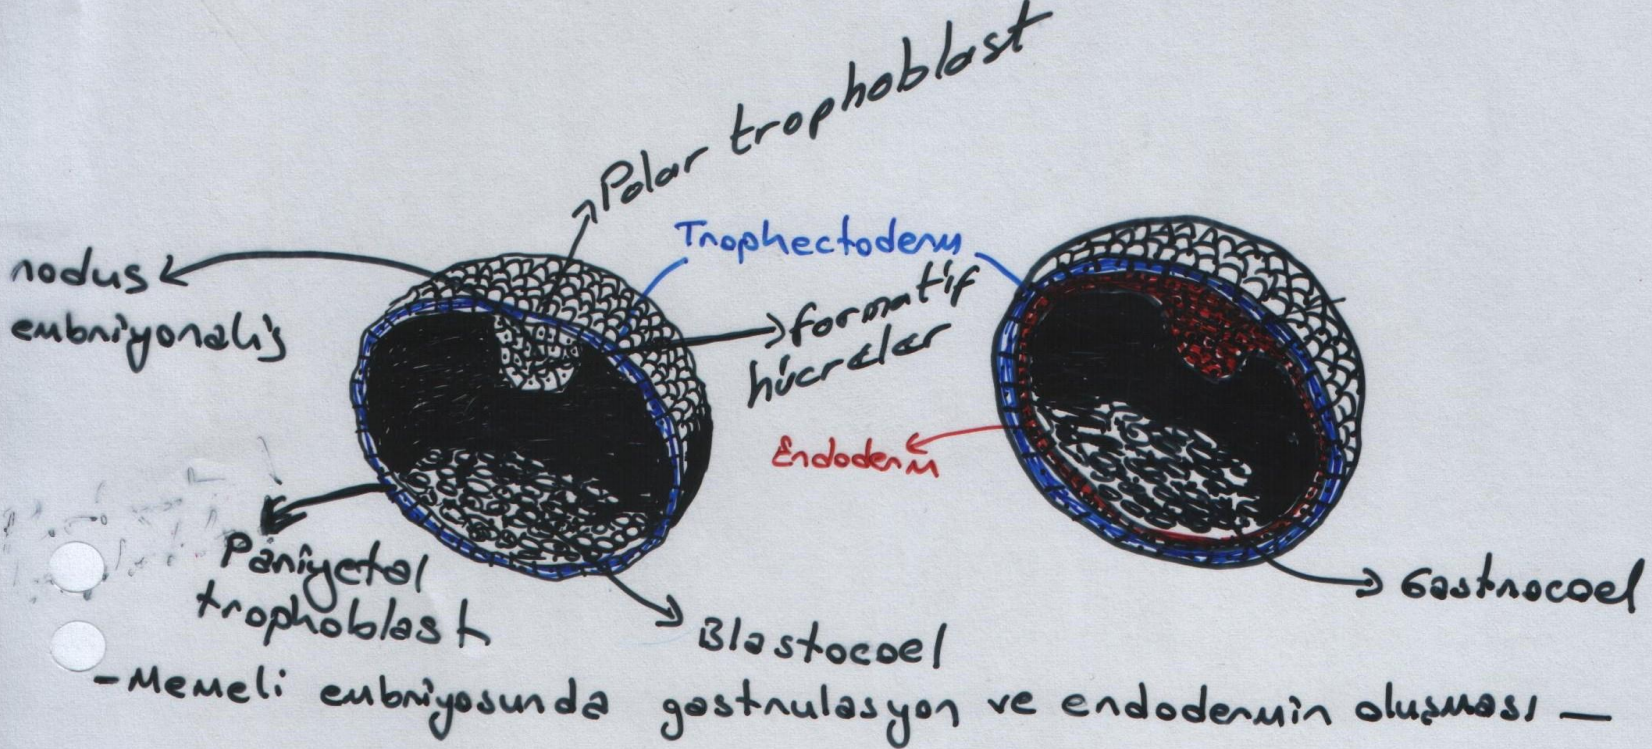 Polar trophoblast
Trophectoderm
nodus
embriyonalis
formatif
hücreler
Endoderm
Pariyetal
trophoblast
Gastrocoel
Blastocoel
- Memeli embriyosunda gastrulasyon ve endodermin oluşması -